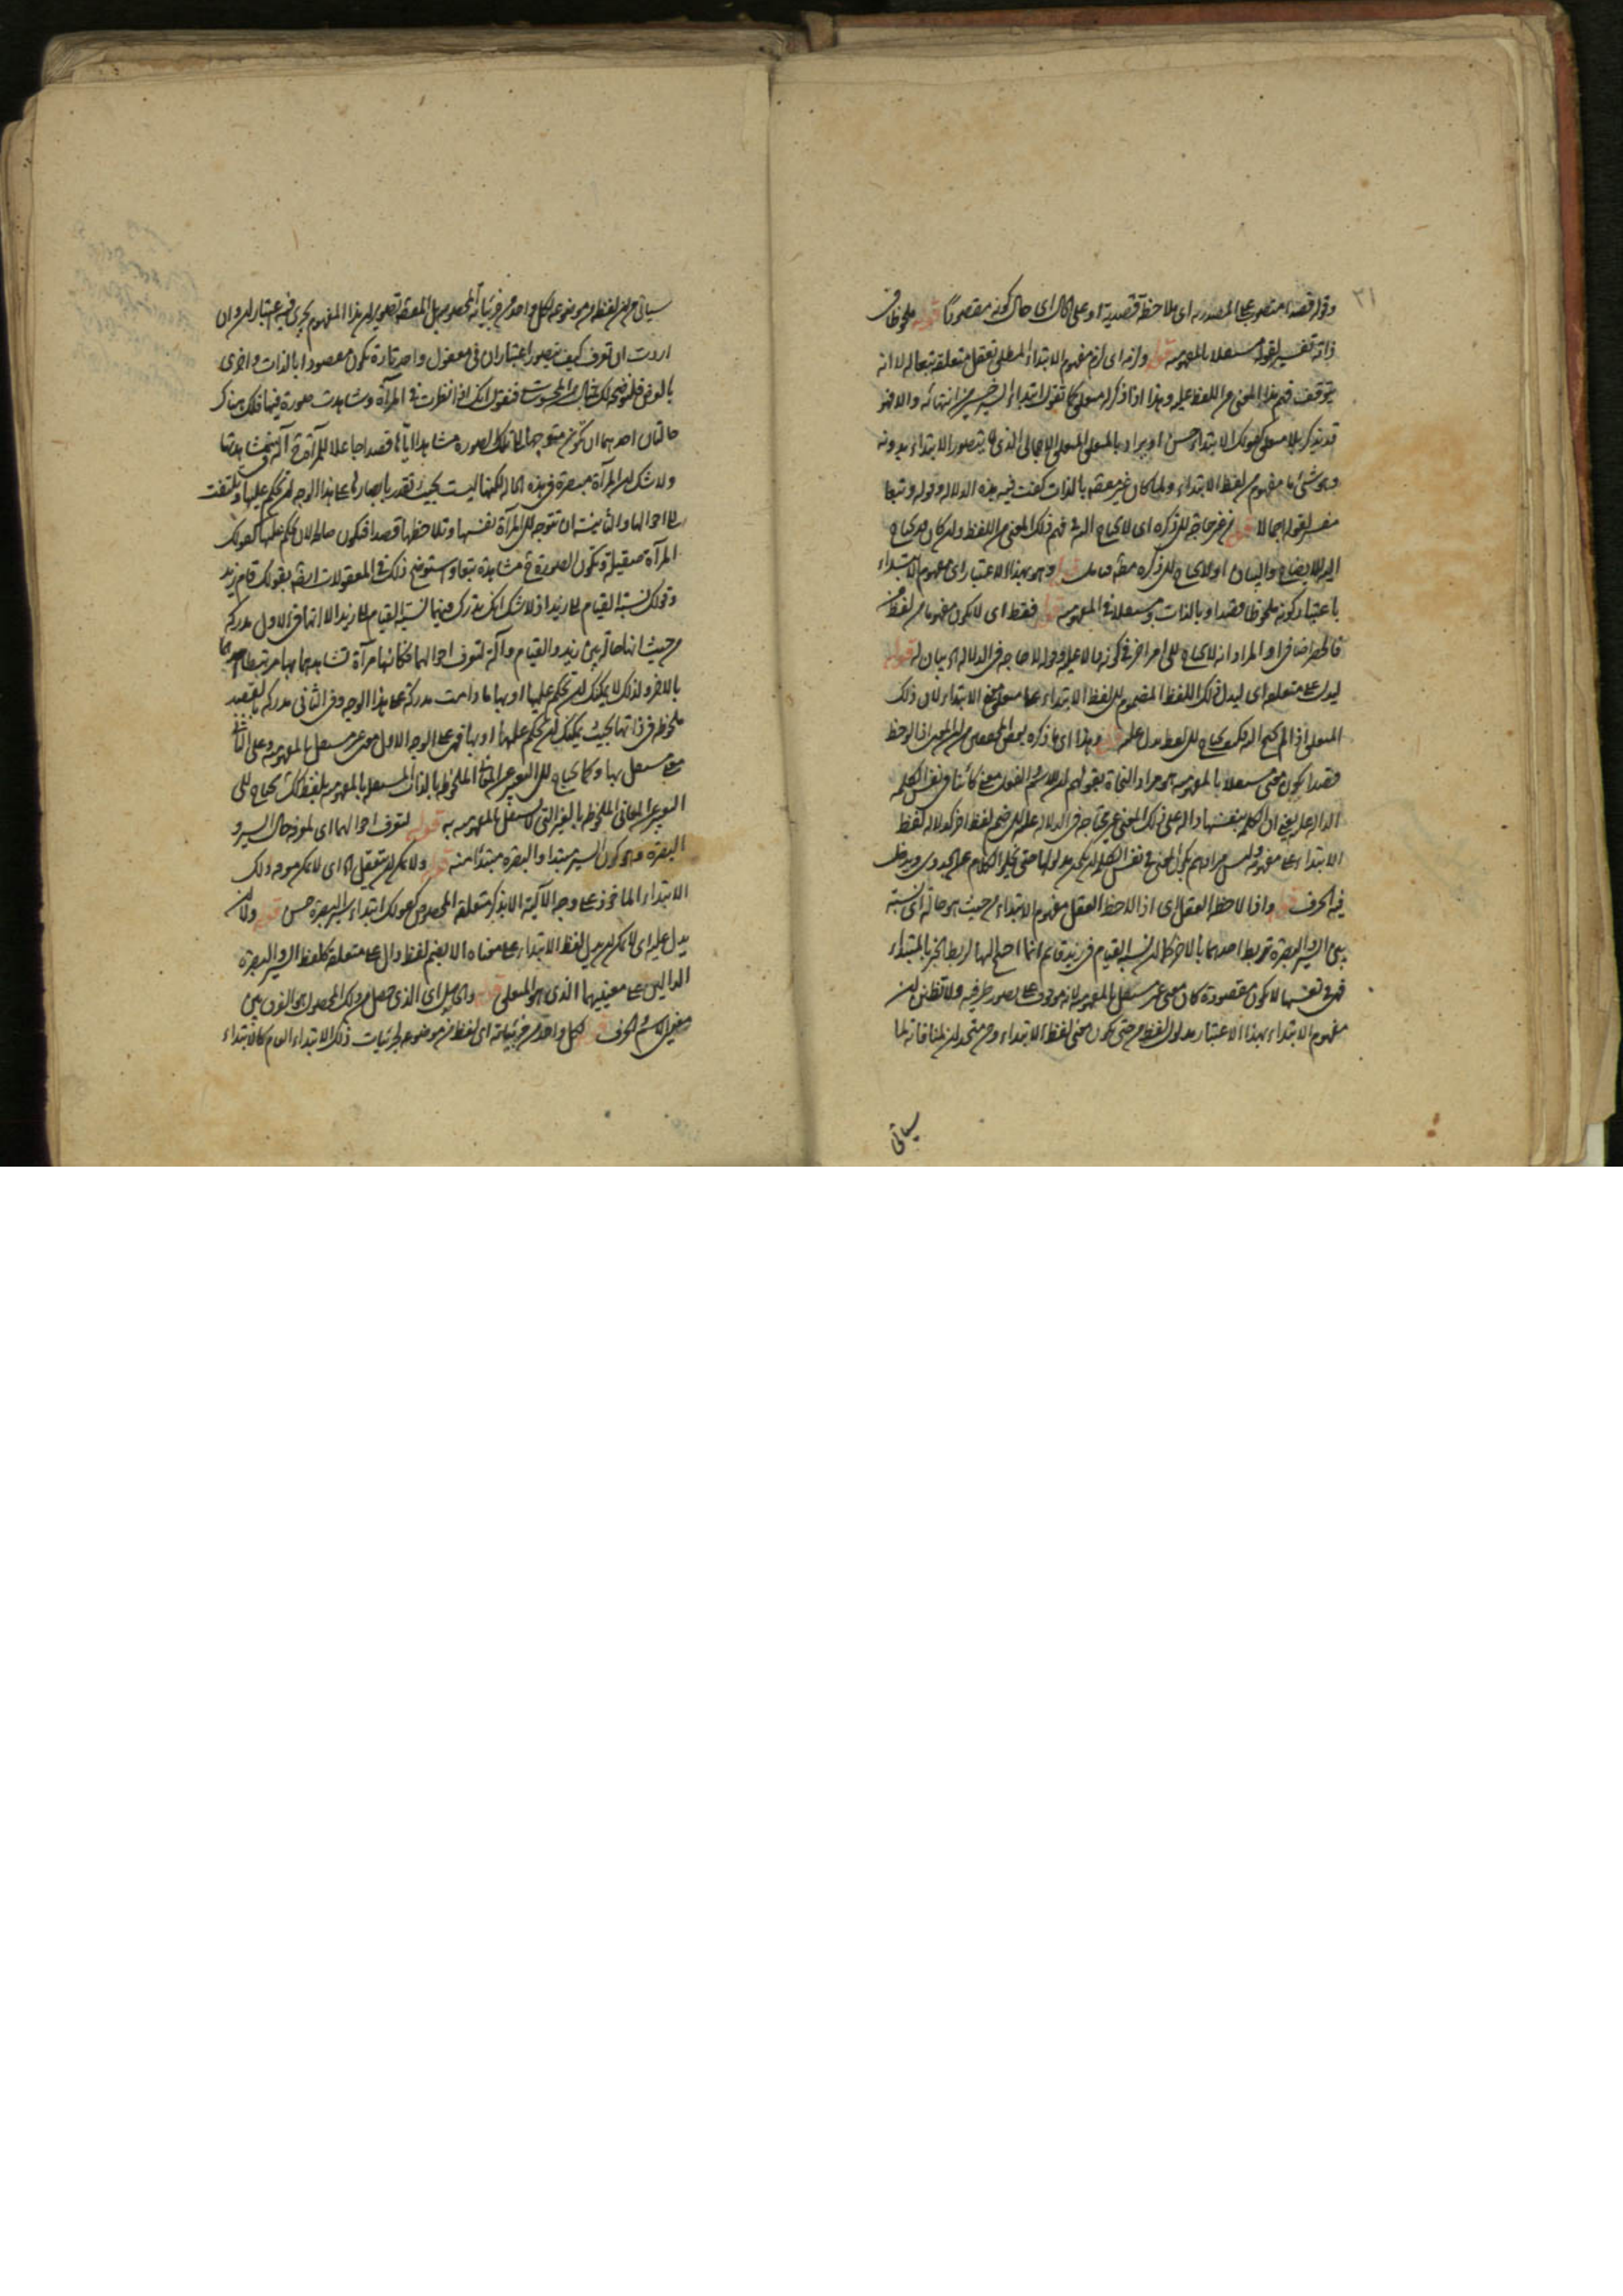 ٢١
وقوله قصدا منصوب على المصدرية اى ملاحظة قصدية او على الحال اى حال كونه مقصودا قوله ملحوظا فى
ذاته تفسير لقوله مستقلا بالمفهومية قوله ولزمه اى لزم مفهوم الابتداء المطلق تعقل متعلقه تبعا له لا انه
يتوقف فهم هذا المعنى من اللفظ عليه وهذا اذا ذكر له متعلق كما تقول ابتداء السير خير من انتهائه والا فهو
قد يذكر بلا متعلق كقولك الابتداء حسن او يراد بالمتعلق المتعلق الاجمالى الذى لا يتصور الابتداء بدونه
وهو شئ ما مفهوم من لفظ الابتداء ولما كان غير معقول بالذات كفت فيه هذه الدلالة وقوله وتبعا
مفسر لقوله اجمالا قوله من غير حاجة الى ذكره اى لا يحتاج اليه فى فهم ذلك المعنى من اللفظ وان كان قد يحتاج
اليه للايضاح والبيان او لا يحتاج الى ذكره قوله وهو بهذا الاعتبار اى مفهوم الابتداء
باعتبار كونه ملحوظا قصدا وبالذات ومستقلا فى المفهومية قوله فقط اى لا يكون مفهوما من لفظ من
فالحصر اضافى او المراد انه لا يحتاج الى امر اخر فى كونه دالا عليه وقوله لا حاجة فى الدلالة الخ بيان له قوله
ليدل على متعلقه اى ليدل ذلك اللفظ المضموم الى لفظ الابتداء على متعلق معنى الابتداء لان ذلك
المتعلق اذا لم يحتج اليه فكيف يحتاج الى لفظ يدل عليه قوله وهذا اى ما ذكره بعض المحققين من ان المعنى اذا لوحظ
قصدا يكون معنى مستقلا بالمفهومية هو مراد النحاة بقولهم ان للاسم والفعل معنى كائنا فى نفس الكلمة
الدالة عليه يعنى ان الكلمة بنفسها دالة على ذلك المعنى غير محتاجة فى الدلالة عليه الى ضم لفظ اخر كدلالة لفظ
الابتداء على مفهومه وليس مرادهم بكون المعنى فى نفس الكلمة ان يكون مدلولها حتى يخلو الكلام عن الجدوى ويدخل
فيه الحرف قوله واذا لاحظه العقل اى اذا لاحظ العقل مفهوم الابتداء من حيث هو حالة اى نسبة
بين السير والبصرة تربط احدهما بالاخر كما ان نسبة القيام فى زيد قائم انما احتاج اليها لربط الخبر بالمبتداء
فهى فى نفسها لا تكون مقصودة كان معنى غير مستقل بالمفهومية لانه موقوف على تصور طرفيه ولا تظنن ان
مفهوم الابتداء بهذا الاعتبار مدلول لفظ من حتى يكون معنى لفظ الابتداء ومن متحدين لمنافاته لما
سياتى
سياتى من ان لفظ من موضوعة لكل واحد من جزئياته المخصوصة بل المقصد تصوير ان هذا المفهوم يجرى فيه اعتباران وان
اردت ان تعرف كيف يتصور اعتباران فى معقول واحد تارة يكون مقصودا بالذات واخرى
بالعرض فلنوضحه لك بمثال من المحسوسات فنقول انك اذا نظرت فى المرآة وشاهدت صورة فيها فلك هناك
حالتان احدهما ان تكون متوجها الى تلك الصورة مشاهدا اياها قصدا جاعلا للمرآة ح آلة فى مشاهدتها
ولا شك ان المرآة مبصرة فى هذه الحالة لكنها ليست بحيث تقدر بابصارها على هذا الوجه ان تحكم عليها وتلتفت
الى احوالها والثانية ان تتوجه الى المرآة نفسها وتلاحظها قصدا فتكون صالحة لان تحكم عليها كقولك
المرآة صقيلة وتكون الصورة ح مشاهدة تبعا واستوضح ذلك فى المعقولات ايضا بقولك قام زيد
وقولك نسبة القيام الى زيد اذ لا شك انك تدرك فيهما نسبة القيام الى زيد الا انها فى الاول مدركة
من حيث انها حالة بين زيد والقيام وآلة لتعرف احوالهما فكانها مرآة تشاهدهما بها مرتبطا احدهما
بالاخر ولذلك لا يمكنك ان تحكم عليها او بها ما دامت مدركة على هذا الوجه وفى الثانى مدركة بالقصد
ملحوظة فى ذاتها بحيث يمكنك ان تحكم عليها او بها فهى على الوجه الاول معنى غير مستقل بالمفهومية وعلى الثانى
معنى مستقل بها وكما يحتاج الى التعبير عن المعانى الملحوظة بالذات المستقلة بالمفهومية بلفظ كذلك يحتاج الى
التعبير عن المعانى الملحوظة بالغير التى لا تستقل بالمفهومية به قوله لتعرف احوالهما اى لمعرفة حال السير و
البصرة وهو كون السير مبتدأ والبصرة مبتدأ منه قوله ولا يمكن ان يتعقل الخ اى لا يمكن معرفة ذلك
الابتداء الماخوذ على وجه الآلية الا بذكر متعلقه المخصوص كقولك ابتداء سير البصرة حسن قوله ولا ان
يدل عليه اى لا يمكن ان يدل لفظ الابتداء على معناه الا بضم لفظ دال على متعلقه كلفظ السير والبصرة
الدالين على معنييهما الذى هو المتعلق قوله والحاصل اى الذى حصل من ذلك المحصول هو الفرق بين
معنى الاسم والحرف قوله لكل واحد من جزئياته اى لفظ من موضوعة لجزئيات ذلك الابتداء العام كالابتداء